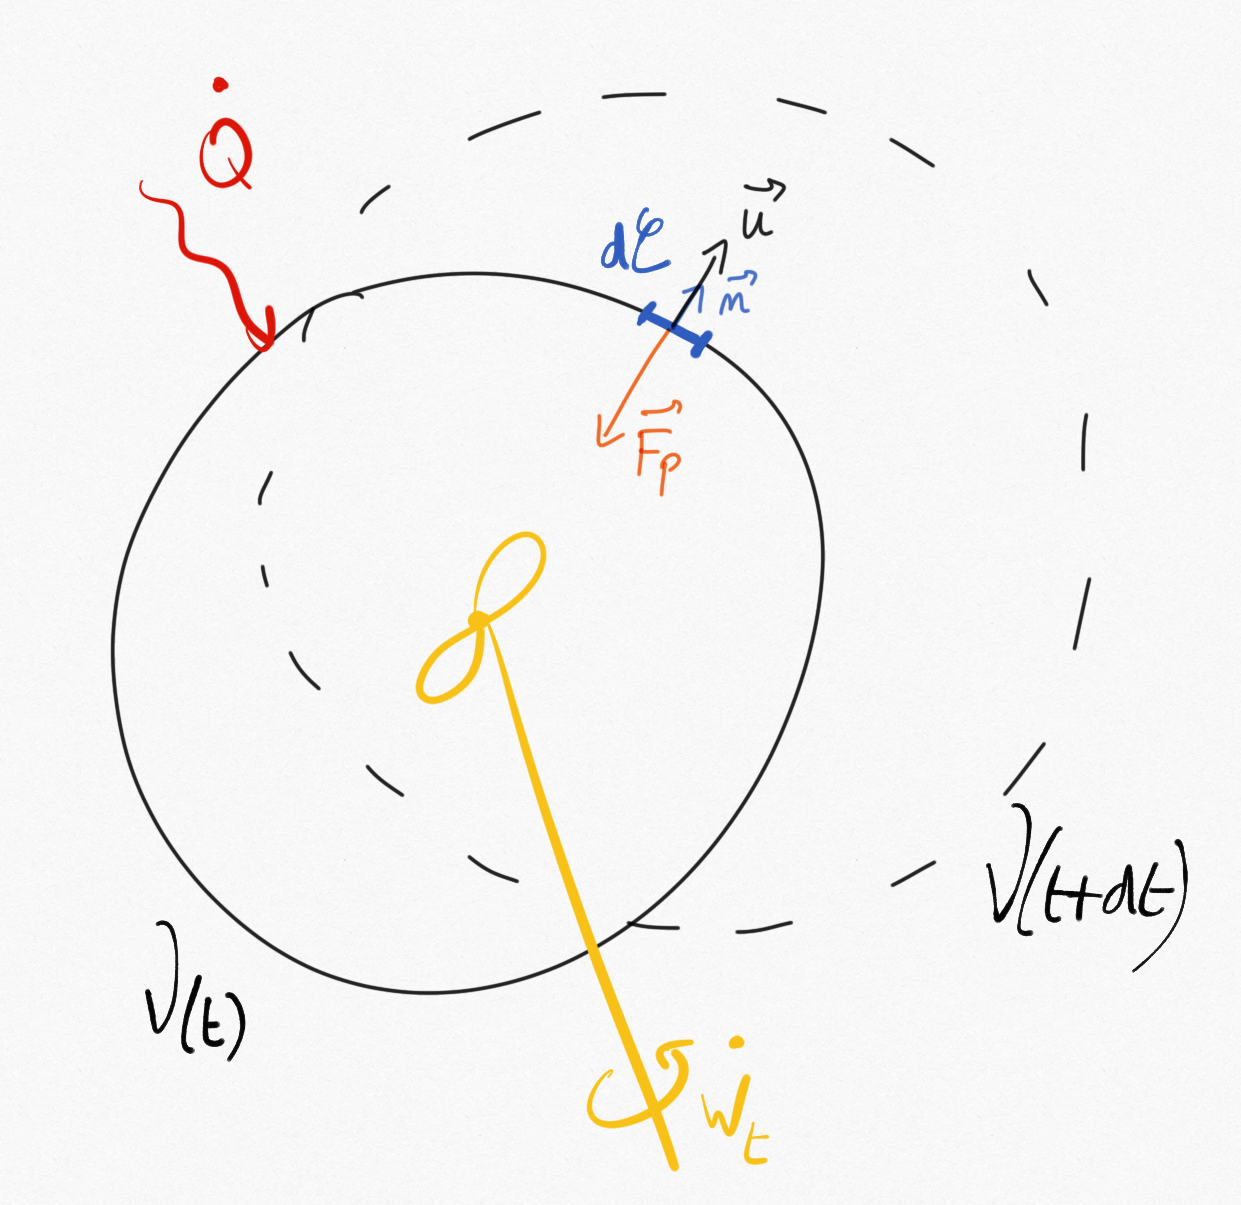 Q̇
u⃗
dℓ
n⃗
F⃗p
V(t+dt)
V(t)
Ẇt